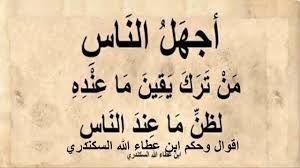 أجهَلُ النَاسِ
مَنْ تَرَكَ يَقِينَ مَا عِنْدَهِ
لظنِّ مَا عِندَ النَاس
اقوال وحكم ابن عطاء الله السكندري
ابن عطاء الله السكندري